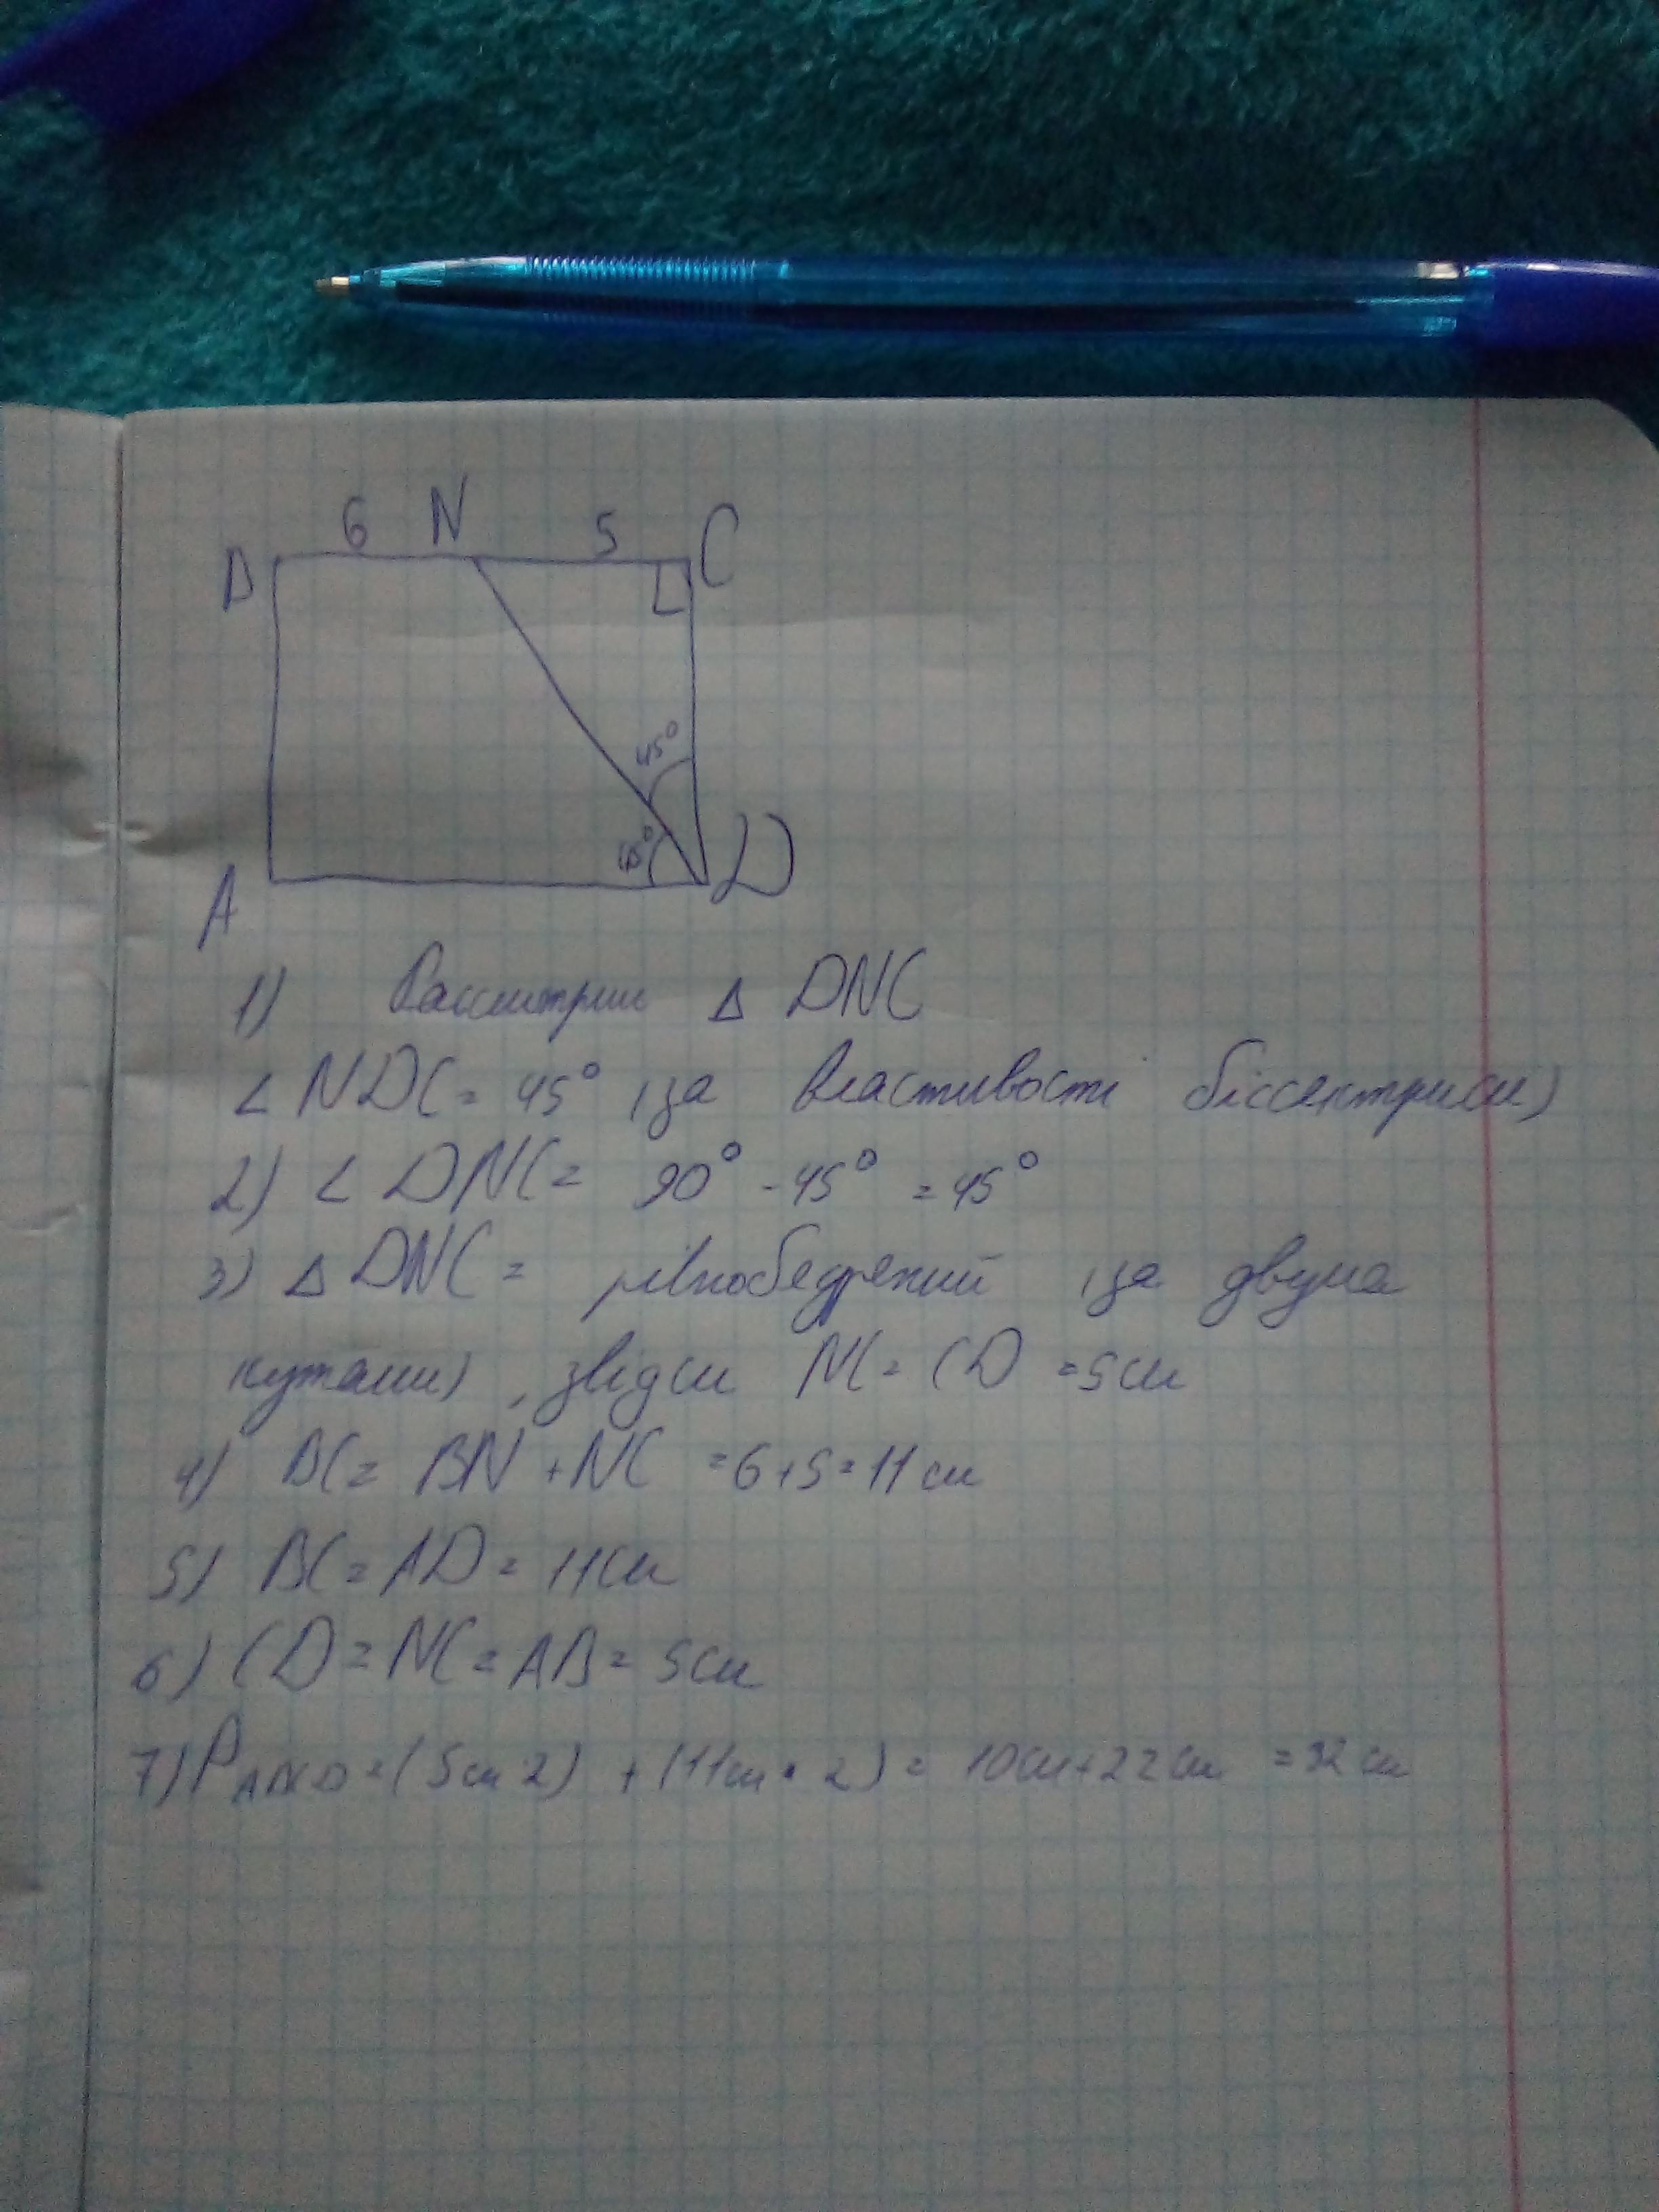 6 N 5 C
B
45°
45°
A D
1) Рассмтрим Δ DNC
∠ NDC = 45° (за властивості біссектриси)
2) ∠ DNC = 90° - 45° = 45°
3) Δ DNC = рівнобедрений (за двума
кутами), звідси NC = CD = 5см
4) BC = BN + NC = 6+5=11 см
5) BC = AD = 11см
6) CD = NC = AB = 5см
7) P = (5см 2) + (11см • 2) = 10см+22см = 32см